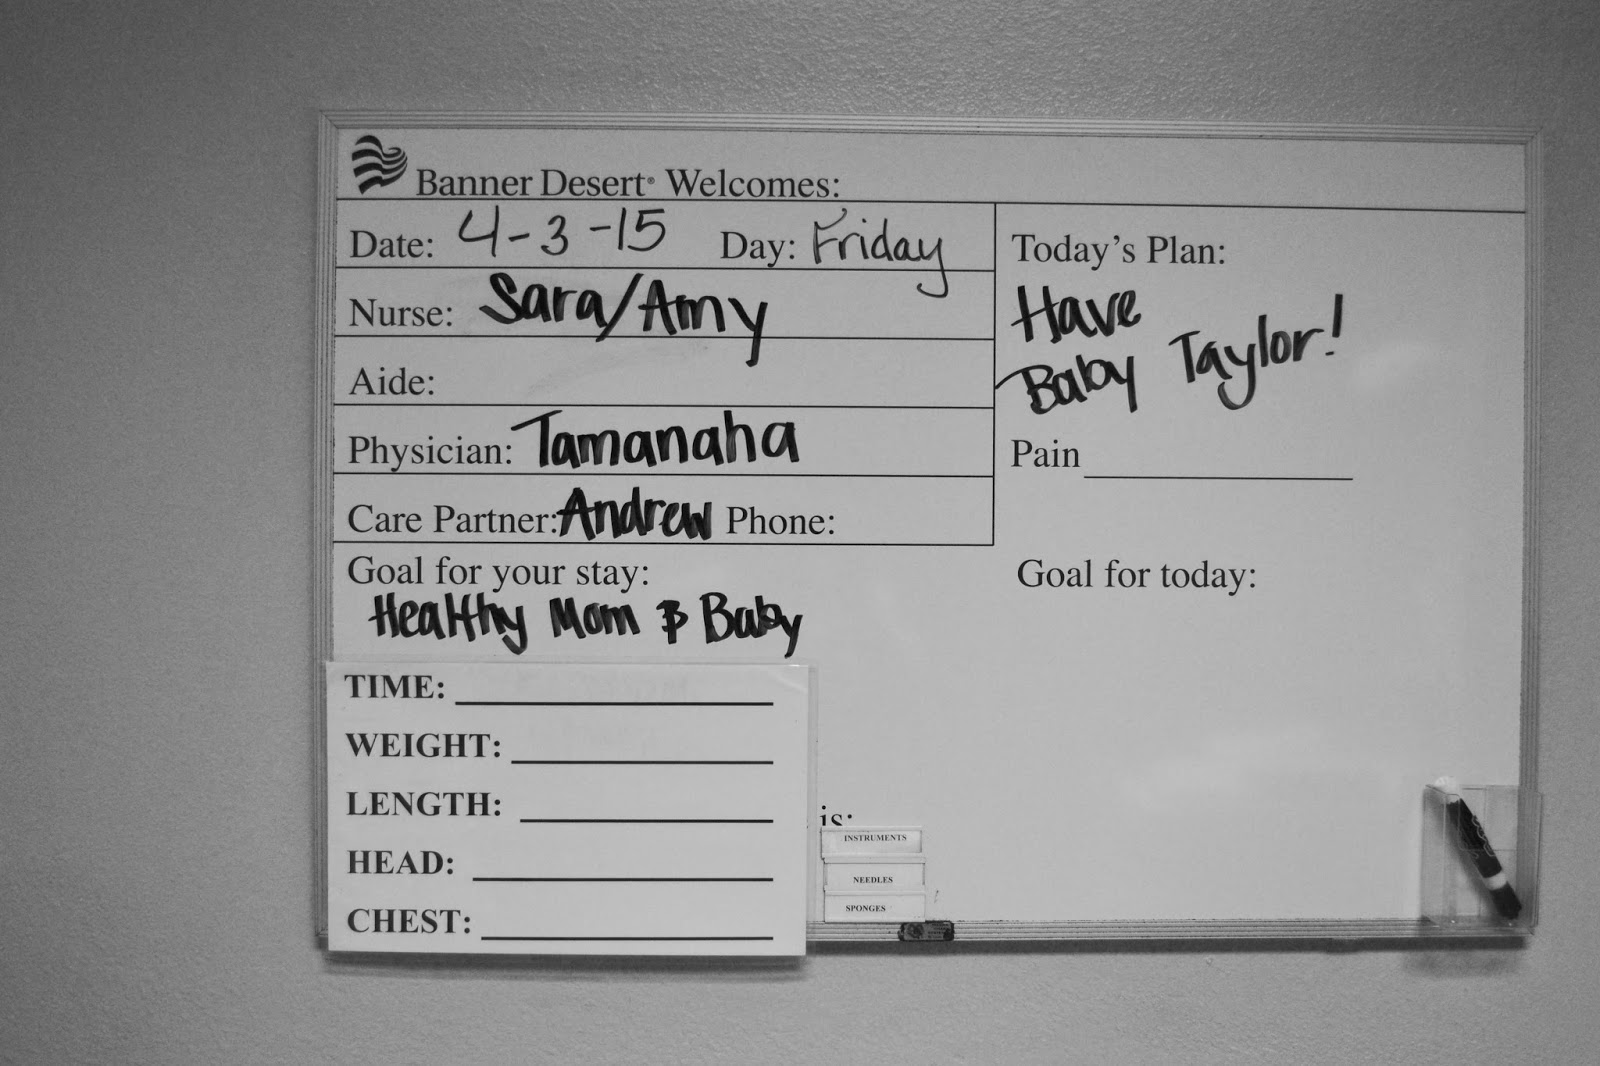 Banner Desert® Welcomes:
Date: 4-3-15 Day: Friday
Nurse: Sara/Amy
Aide:
Physician: Tamanaha
Care Partner: Andrew Phone:
Today's Plan:
Have
Baby Taylor!
Pain
Goal for your stay:
Healthy Mom & Baby
Goal for today:
TIME:
WEIGHT:
LENGTH:
HEAD:
CHEST:
is:
INSTRUMENTS
NEEDLES
SPONGES